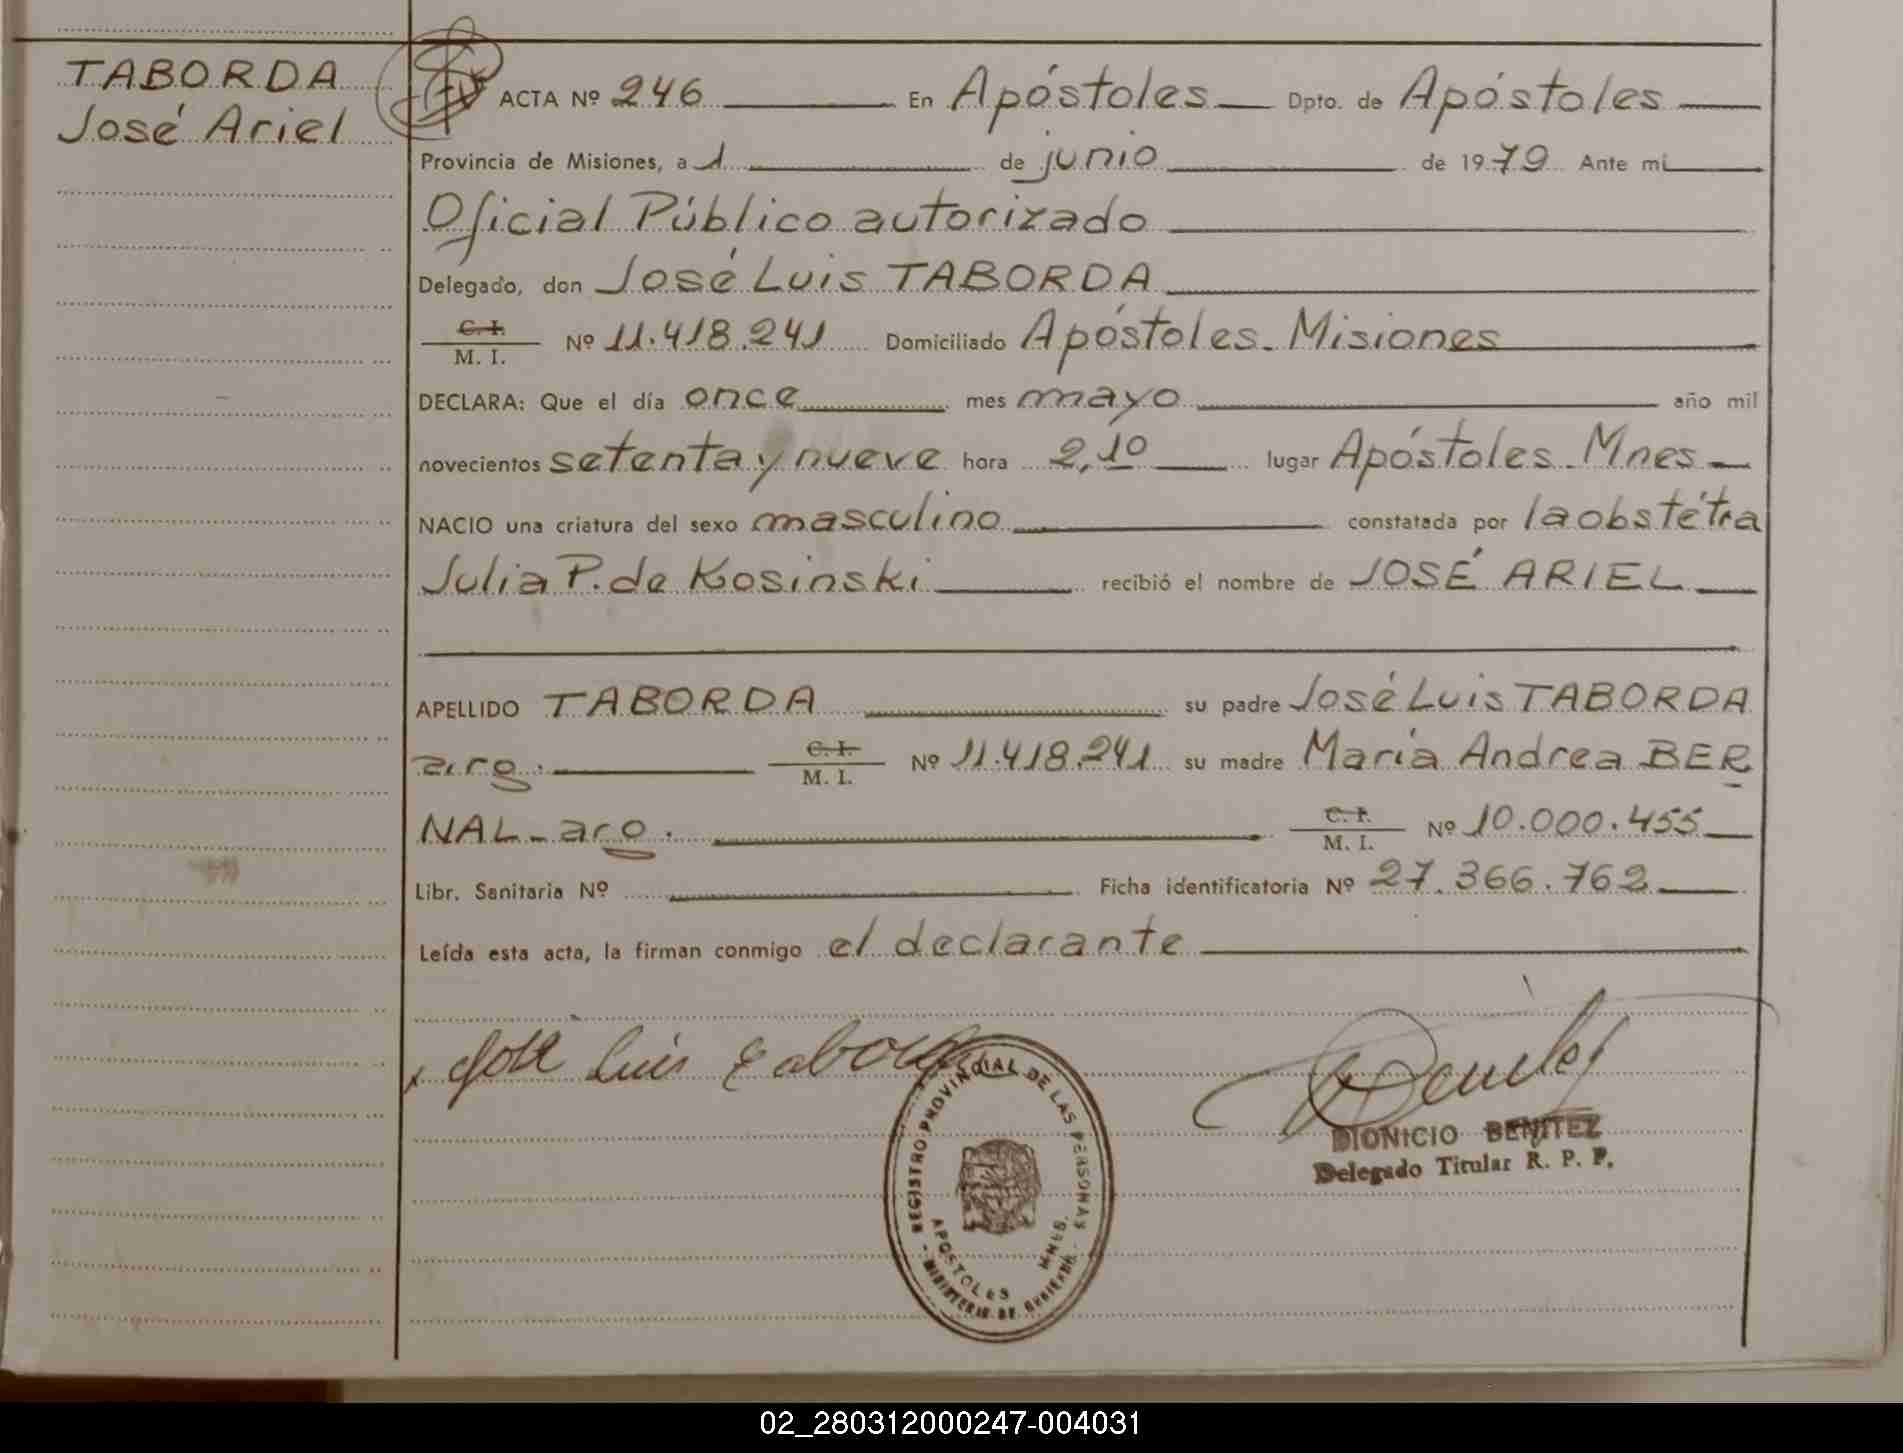 TABORDA
José Ariel
ACTA Nº 246 En Apóstoles Dpto. de Apóstoles
Provincia de Misiones, a 1 de junio de 1979 Ante mí
Oficial Público autorizado
Delegado, don José Luis TABORDA
C. I.
M. I. Nº 11.418.241 Domiciliado Apóstoles. Misiones
DECLARA: Que el día once mes mayo año mil
novecientos setenta y nueve hora 2,10 lugar Apóstoles. Mnes
NACIO una criatura del sexo masculino constatada por la obstétra
Julia P. de Kosinski recibió el nombre de JOSÉ ARIEL
APELLIDO TABORDA su padre José Luis TABORDA
arg. C. I.
M. I. Nº 11.418.241 su madre María Andrea BER
NAL_ arg. C. I.
M. I. Nº 10.000.455
Libr. Sanitaria Nº Ficha identificatoria Nº 27.366.762
Leída esta acta, la firman conmigo el declarante
José Luis Taborda
Benitez
DIONICIO BENITEZ
Delegado Titular R. P. P.
REGISTRO PROVINCIAL DE LAS PERSONAS
APOSTOLES MNES.
MINISTERIO DE GOBIERNO
02_280312000247-004031